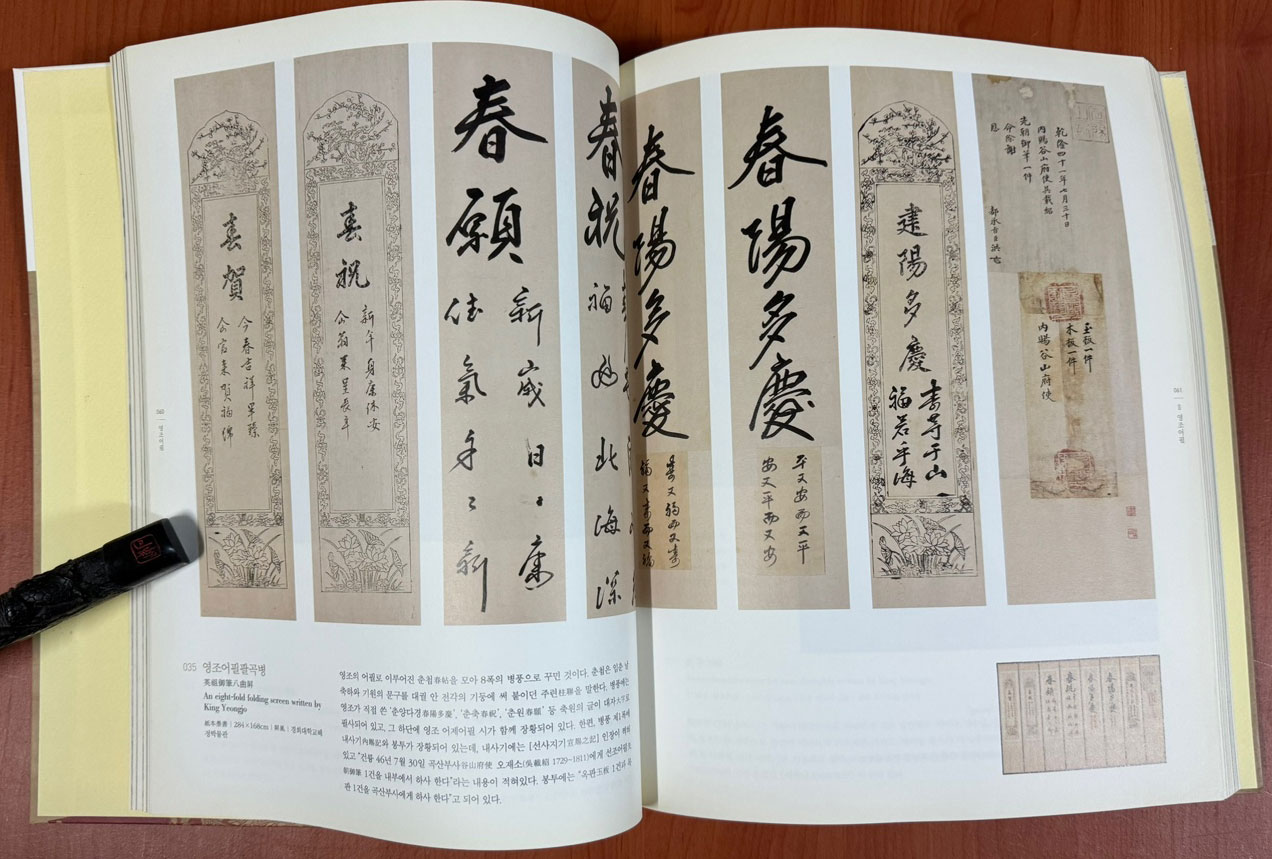 春賀
今春吉祥畢臻
春祝
新年身康体安
春願
新歲日日康
佳氣年年新
春祝
福
北海深
春陽多慶
壽又福而又壽
福又壽而又福
春陽多慶
平又安而又平
安又平而又安
建陽多慶
壽等于山
福若乎海
乾隆四十一年七月三十日
內賜谷山府使吳載紹
先朝御筆一件
命除謝
恩
都承旨臣洪
玉板一件
木板一件
內賜谷山府使
035 영조어필팔곡병
英祖御筆八曲屛
An eight-fold folding screen written by
King Yeongjo
紙本墨書 | 284×168cm | 屛風 | 경희대학교혜
정박물관
영조의 어필로 이루어진 춘첩春帖을 모아 8폭의 병풍으로 꾸민 것이다. 춘첩은 입춘 날
축하와 기원의 문구를 대궐 안 전각의 기둥에 써 붙이던 주련柱聯을 말한다. 병풍에는
영조가 직접 쓴 '춘양다경春陽多慶', '춘축春祝', '춘원春願' 등 축원의 글이 대자大字로
필사되어 있고, 그 하단에 영조 어제어필 시가 함께 장황되어 있다. 한편, 병풍 제1폭에
내사기內賜記와 봉투가 장황되어 있는데, 내사기에는 [선사지기宣賜之記] 인장이 찍혀
있고 "건륭 46년 7월 30일 곡산부사谷山府使 오재소(吳載紹 1729~1811)에게 선조어필先
朝御筆 1건을 내부에서 하사 한다"라는 내용이 적혀있다. 봉투에는 "옥판玉板 1건과 목
판 1건을 곡산부사에게 하사 한다"고 되어 있다.
040
영조어필
041